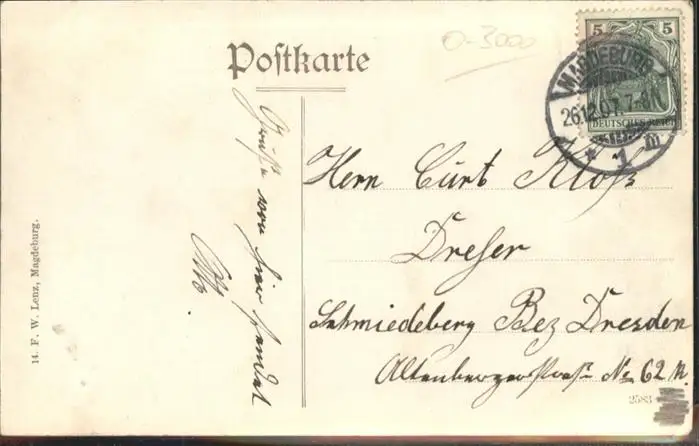 Postkarte
0-3000
5 5
MAGDEBURG
26.12.07. 7-8
DEUTSCHES REICH
* 1 m
Grüße von hier sendet
Otto
Hern Curt Kloß
Dreher
Schmiedeberg Bez Dresden
Altenbergerstraße No 62 N.
2583
14. F. W. Lenz, Magdeburg.